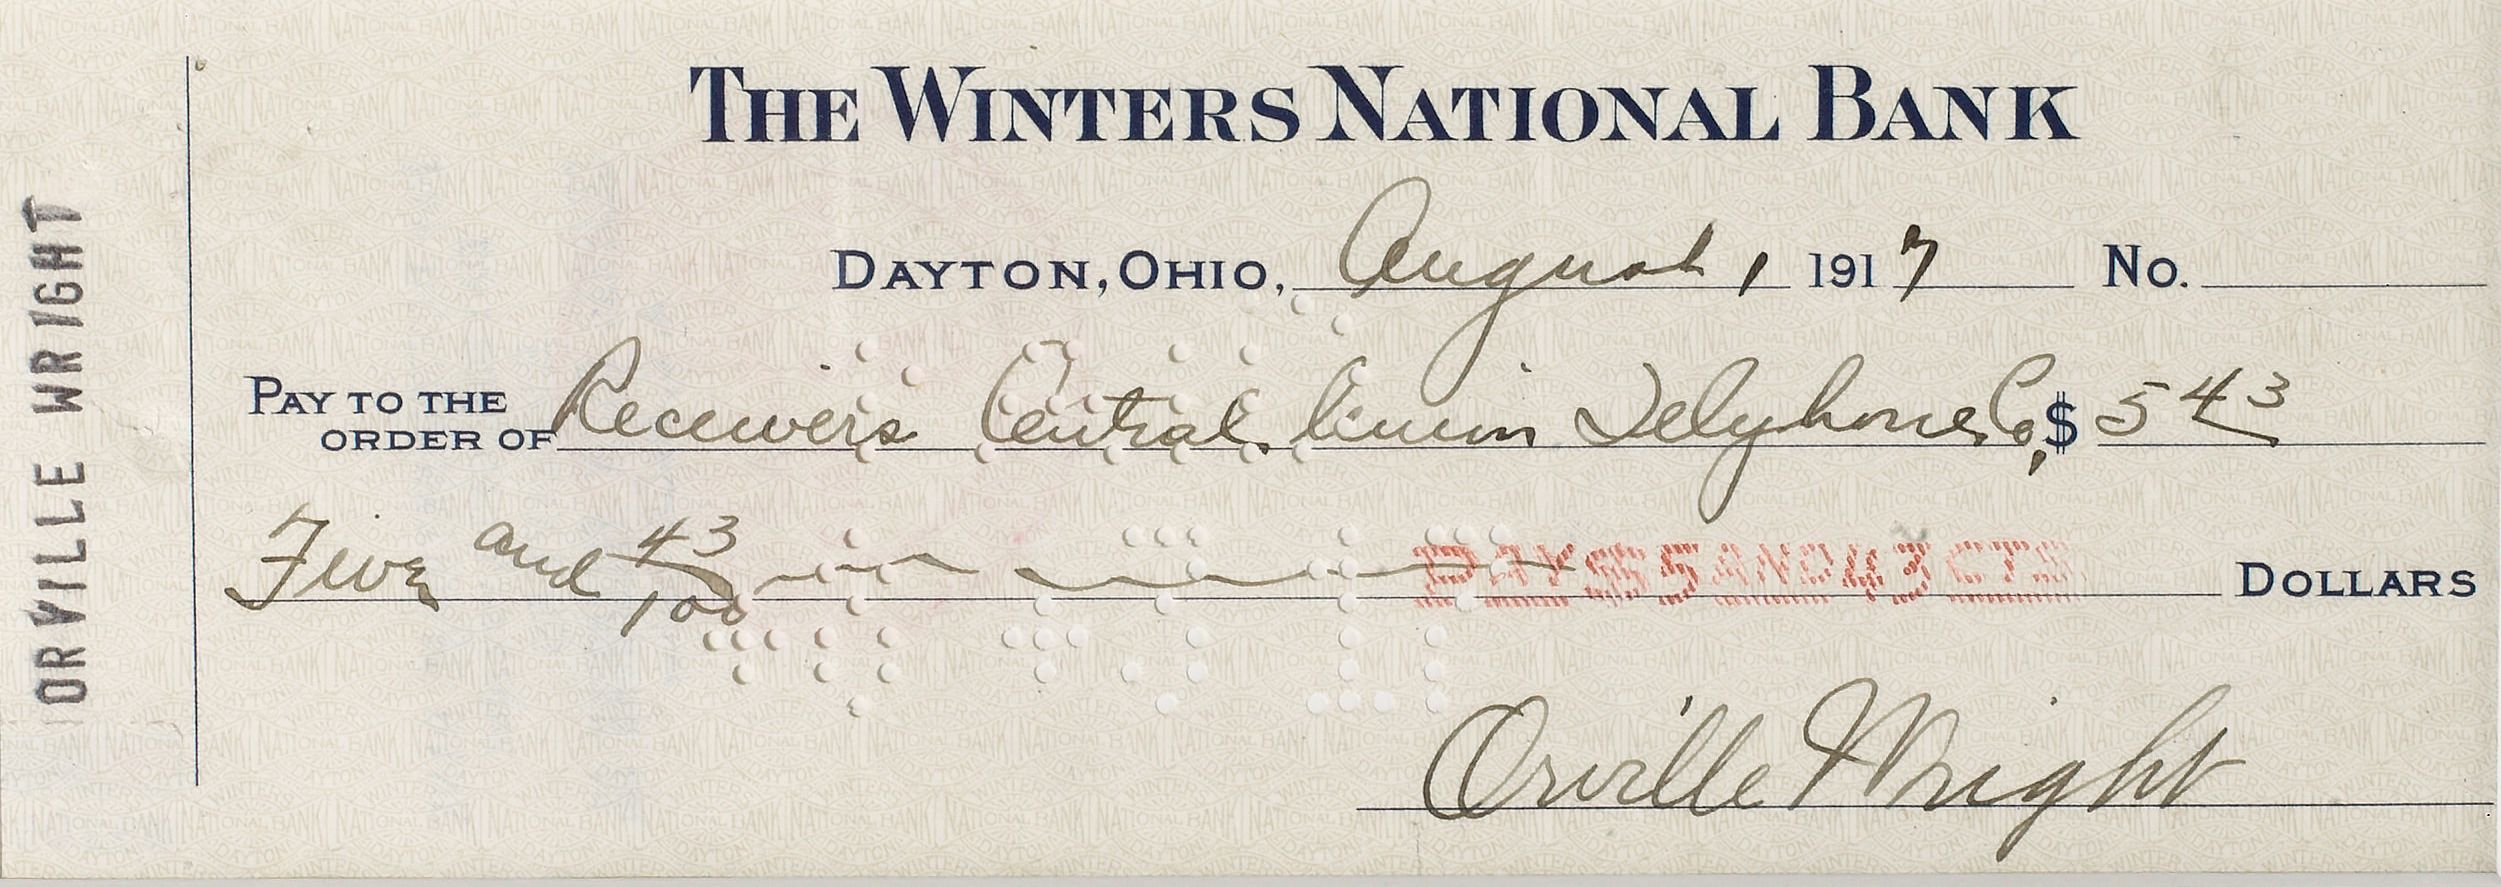 THE WINTERS NATIONAL BANK
DAYTON, OHIO, August 1 1917 No.
PAY TO THE
ORDER OF Receivers Central Union Telephone Co, $ 5 43
Five and 43/100 PAY $5 AND 43 CTS DOLLARS
Orville Wright
ORVILLE WRIGHT